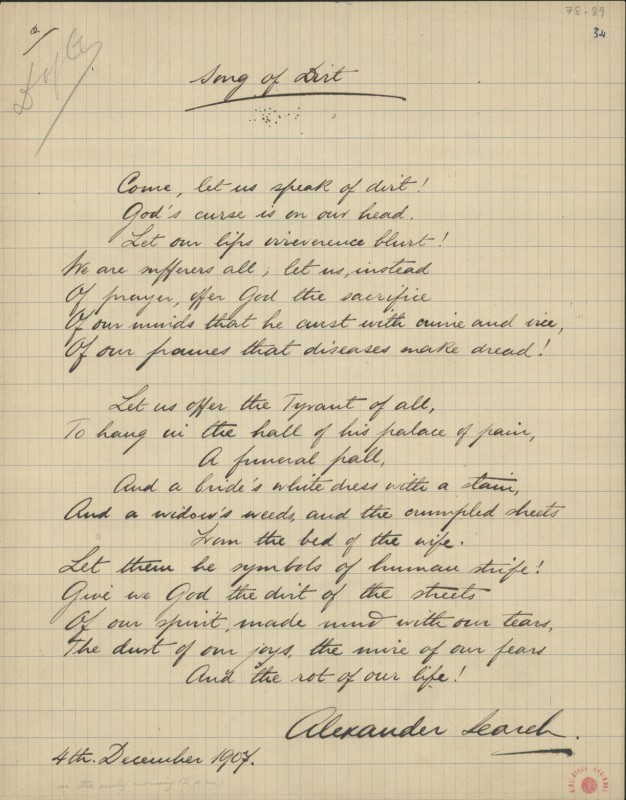 78-89
34
Song of Dirt
Come, let us speak of dirt!
God's curse is on our head.
Let our lips irreverence blurt!
We are sufferers all; let us, instead
Of prayer, offer God the sacrifice
Of our minds that he curst with crime and vice,
Of our frames that diseases make dread!
Let us offer the Tyrant of all,
To hang in the hall of his palace of pain,
A funeral pall,
And a bride's white dress with a stain,
And a widow's weeds, and the crumpled sheets
From the bed of the wife.
Let them be symbols of human strife!
Give we God the dirt of the streets
Of our spirit, made mud with our tears,
The dust of our joys, the mire of our fears
And the rot of our life!
Alexander Search.
4th. December 1907.